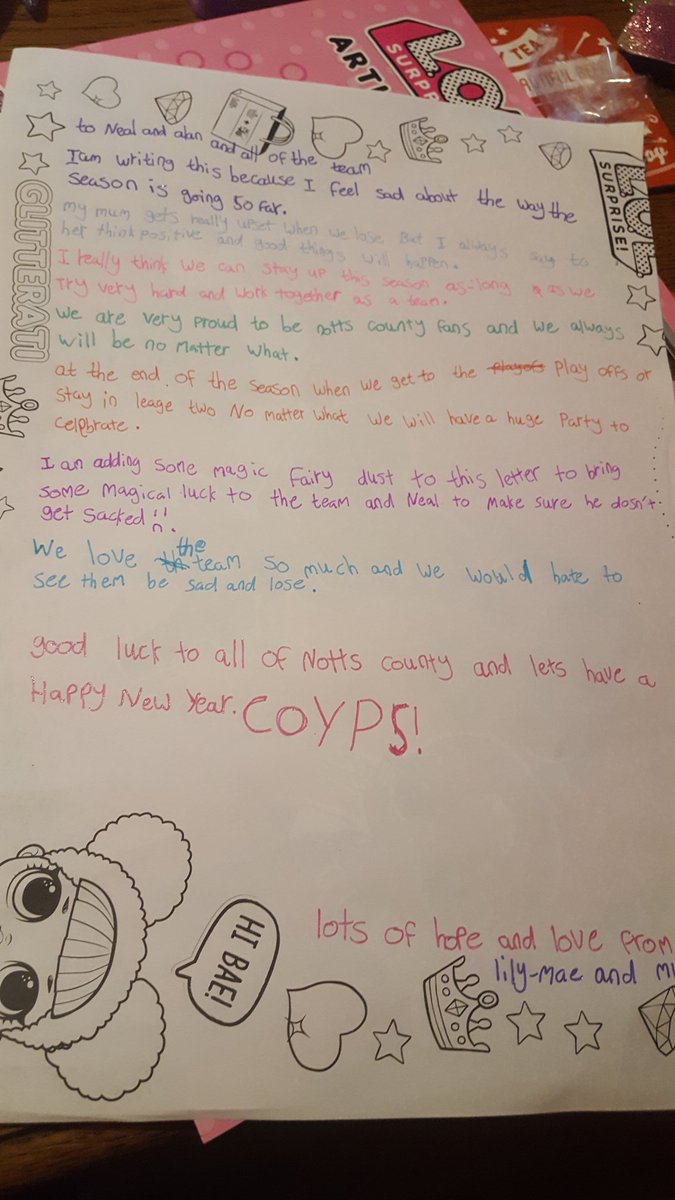 LOL
SURPRISE!
ART
TEA
to Neal and alan and all of the team
I am writing this because I feel sad about the way the
season is going so far.
my mum gets really upset when we lose But I always say to
her think positive and good things will happen.
I really think we can stay up this season as-long as we
try very hard and work together as a team.
we are very proud to be notts county fans and we always
will be no matter what.
at the end of the season when we get to the playofs play offs or
stay in leage two No matter what we will have a huge Party to
Celebrate.
I an adding some magic fairy dust to this letter to bring
some magical luck to the team and Neal to make sure he dosn't
get sacked!!
We love the team so much and we would hate to
see them be sad and lose.
good luck to all of Notts county and lets have a
Happy New Year. COYPS!
lots of hope and love from
lily-mae and
GLITTERATI
LOL
SURPRISE!
HI BAE!